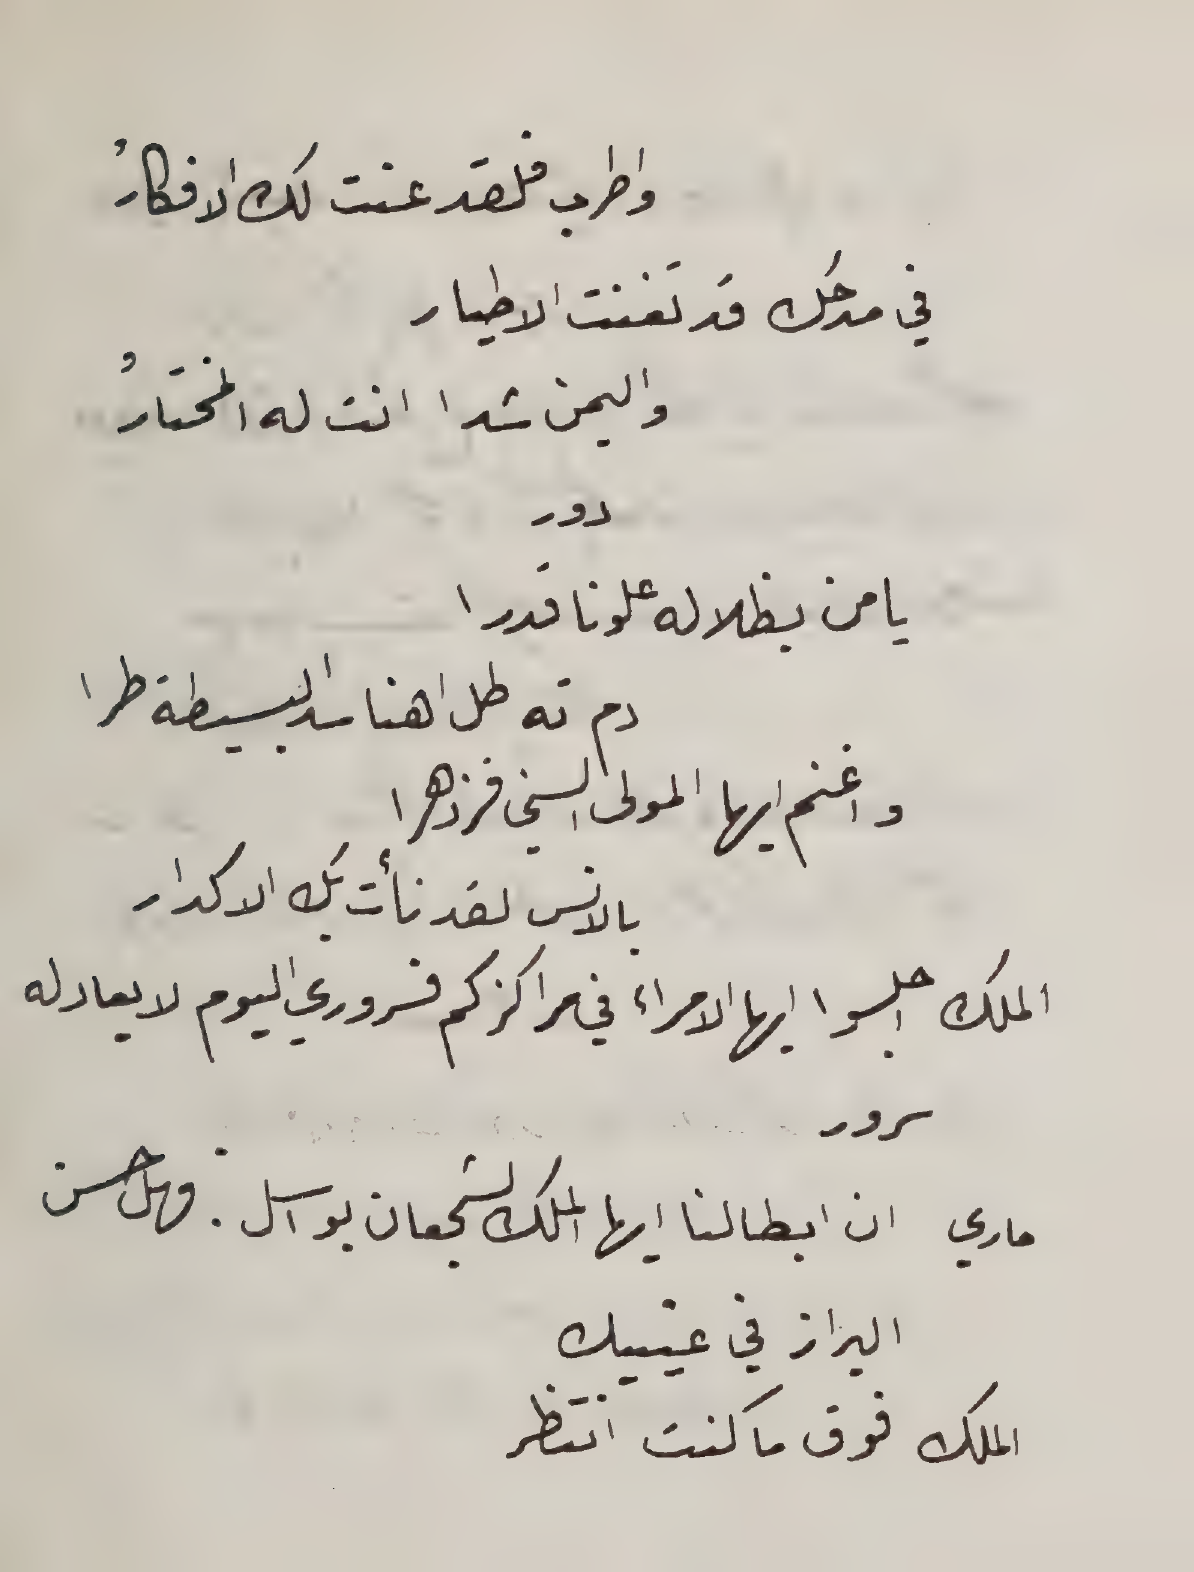 واطرب فلقد عنت لك الافكارُ
في مدحك قد تغنت الاطيار
واليمن شدا انت له المختارُ
دور
يا من بظلاله علونا قدرا
دم ته طل اهنا سد البسيطة طرا
واغنم ايها المولى السني فزهرا
بالانس لقد نأت بك الاكدار
الملك اجلسوا ايها الامراء في مراكزكم فسروري اليوم لا يعادله
سرور
ماري ان ابطالنا ايها الملك لشجعان بواسل . وهل حسن
البراز في عينيك
الملك فوق ما كنت انتظر